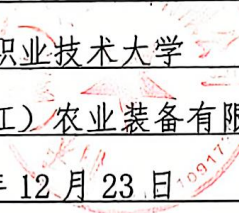 职业技术大学
江）农业装备有限
12月23日
10917